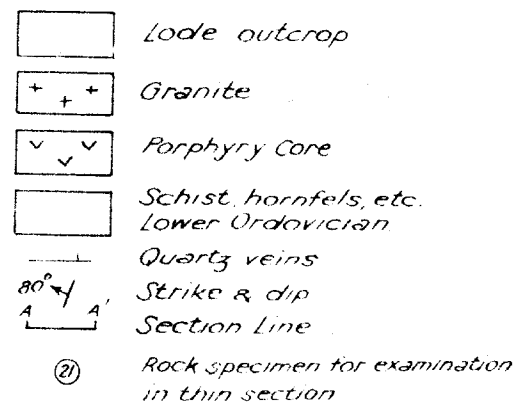 Lode outcrop
Granite
Porphyry Core
Schist, hornfels, etc.
Lower Ordovician
Quartz veins
80° Strike & dip
A A' Section Line
21 Rock specimen for examination
in thin section